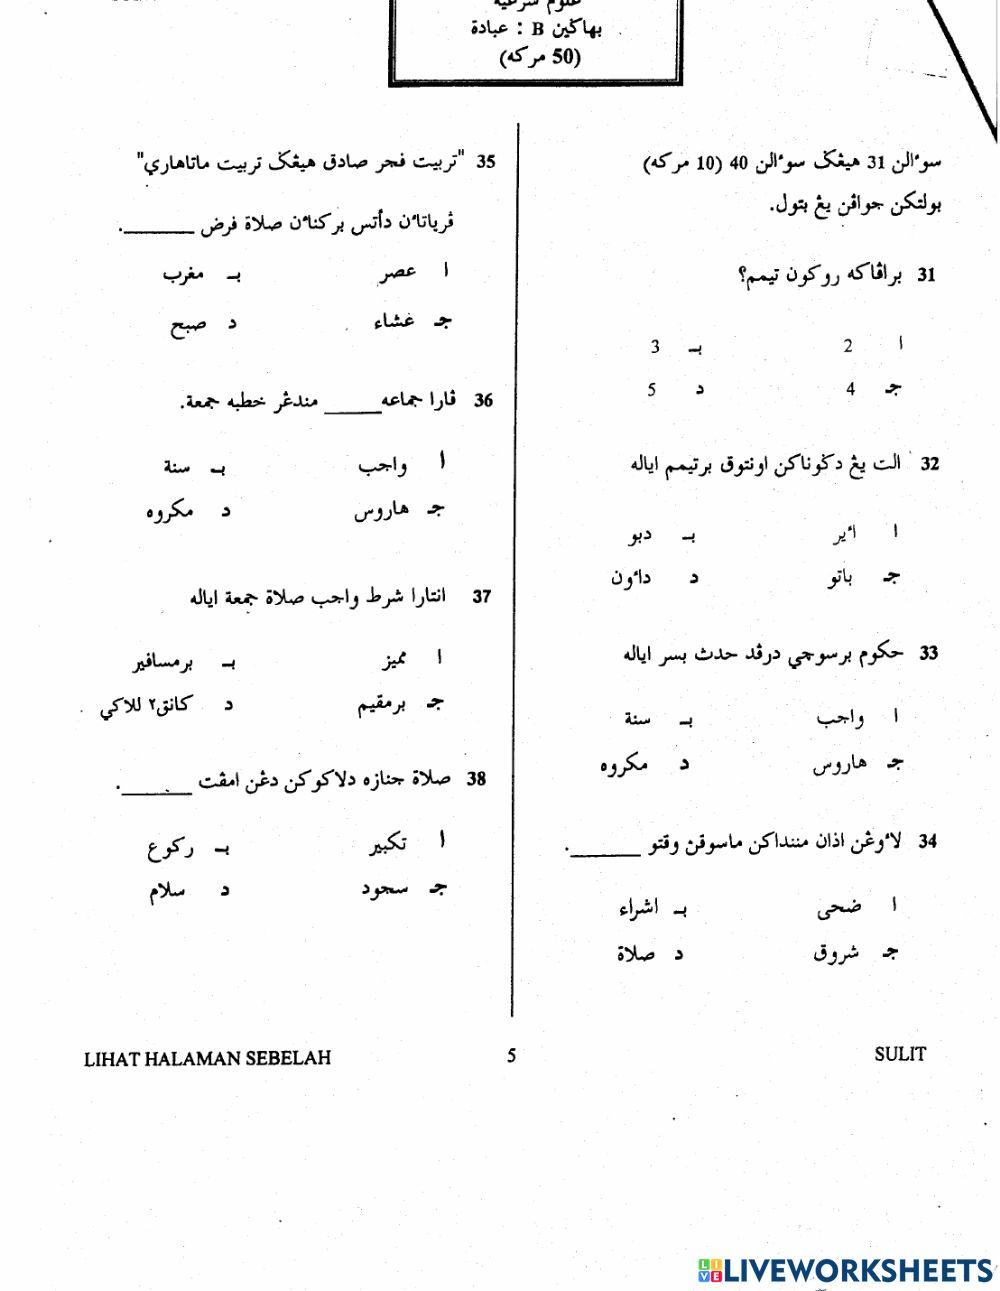 علوم شرعية
بهاڬين B : عبادة
(50 مركه)
سوءالن 31 هيڠݢ سوءالن 40 (10 مركه)
بولتكن جواڤن يڠ بتول.
31 براڤاكه روكون تيمم؟
ا 2 بـ 3
جـ 4 د 5
32 الت يڠ دݢوناكن اونتوق برتيمم اياله
ا اءير بـ دبو
جـ باتو د داءون
33 حكوم برسوچي درڤد حدث بسر اياله
ا واجب بـ سنة
جـ هاروس د مكروه
34 لاءوڠن اذان مننداكن ماسوقڽ وقتو _______.
ا ضحى بـ اشراء
جـ شروق د صلاة
35 "تربيت فجر صادق هيڠݢ تربيت ماتاهاري"
ڤرياتاءن دأتس بركناءن صلاة فرض _______.
ا عصر بـ مغرب
جـ غشاء د صبح
36 ڤارا جماعه ______ مندڠر خطبه جمعة.
ا واجب بـ سنة
جـ هاروس د مكروه
37 انتارا شرط واجب صلاة جمعة اياله
ا مميز بـ برمسافير
جـ برمقيم د كانق٢ للاكي
38 صلاة جنازه دلاكوكن دڠن امڤت _______.
ا تكبير بـ ركوع
جـ سجود د سلام
LIHAT HALAMAN SEBELAH 5 SULIT
LIVEWORKSHEETS